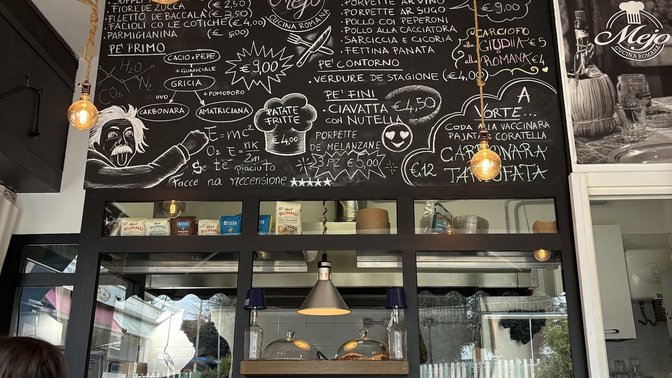 FIOR DE ZUCCA € 2,50
FILETTO DE BACCALÀ € 3,50
FACIOLI CO LE COTICHE € 4,00
PARMIGIANINA
PE' PRIMO
CACIO e PEPE
+ GUANCIALE
GRICIA
+ POMODORO
CARBONARA
AMATRICIANA
€ 9,00
Mejo
CUCINA ROMANA
H₂O
CO₂
E = mc²
Se te è piaciuto
Facce na recensione ★★★★★
PATATE
FRITTE
€ 4,00
PORPETTE AR VINO
PORPETTE AR SUGO
POLLO COI PEPERONI
POLLO ALLA CACIATORA
SARCICCIA E CICORIA
FETTINA PANATA
PE' CONTORNO
VERDURE DE STAGIONE (€ 4,00)
PE' FINI
CIAVATTA CON
NUTELLA
€ 4,50
PORPETTE
DE MELANZANE
3 PZ € 5,00
CARCIOFO
alla GIUDIA € 5
alla ROMANA € 4
A
VORTE...
CODA ALLA VACCINARA
PAJATA CORATELLA
CARBONARA
TARTUFATA
€ 12
Mejo
CUCINA ROMANA
RUMMO
RUMMO